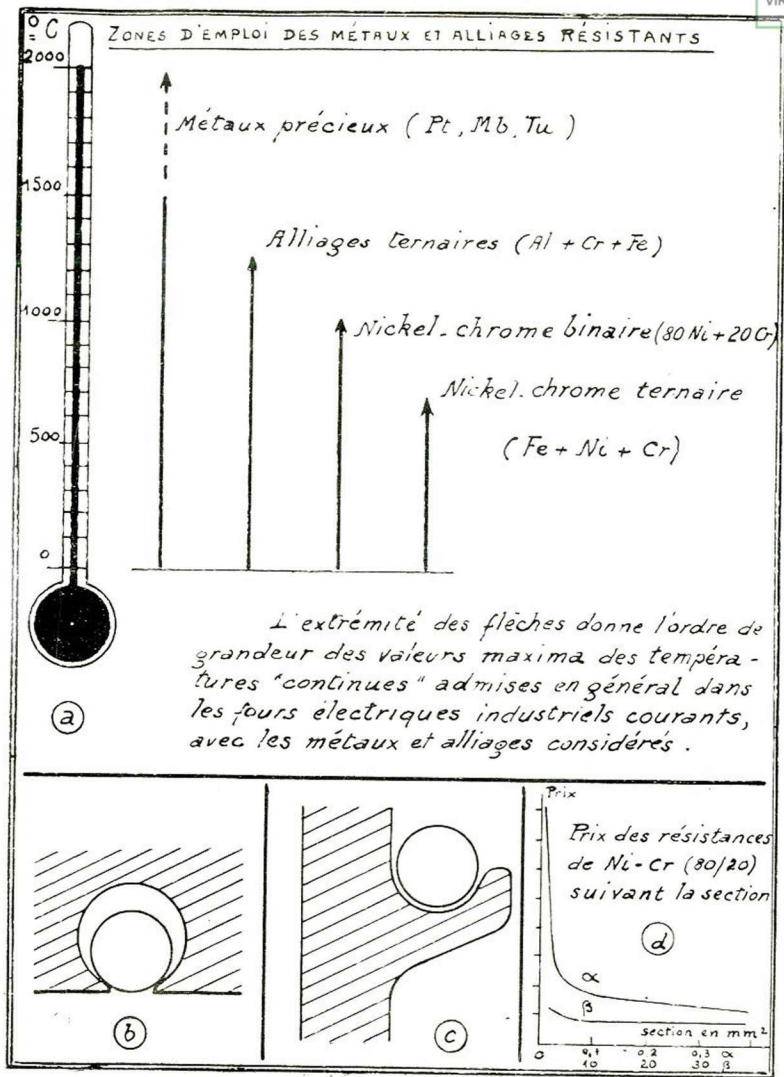 ° C
ZONES D'EMPLOI DES MÉTAUX ET ALLIAGES RÉSISTANTS
2000
Métaux précieux ( Pt, Mb, Tu )
1500
Alliages ternaires (Al + Cr + Fe)
1000
Nickel-chrome binaire (80 Ni + 20 Cr)
Nickel-chrome ternaire
500
( Fe + Ni + Cr )
0
L'extrémité des flèches donne l'ordre de
grandeur des valeurs maxima des tempéra-
tures "continues" admises en général dans
les fours électriques industriels courants,
avec les métaux et alliages considérés.
a
Prix
Prix des résistances
de Ni-Cr (80/20)
suivant la section
d
α
β
section en mm²
0 0,1 0,2 0,3 α
10 20 30 β
b
c